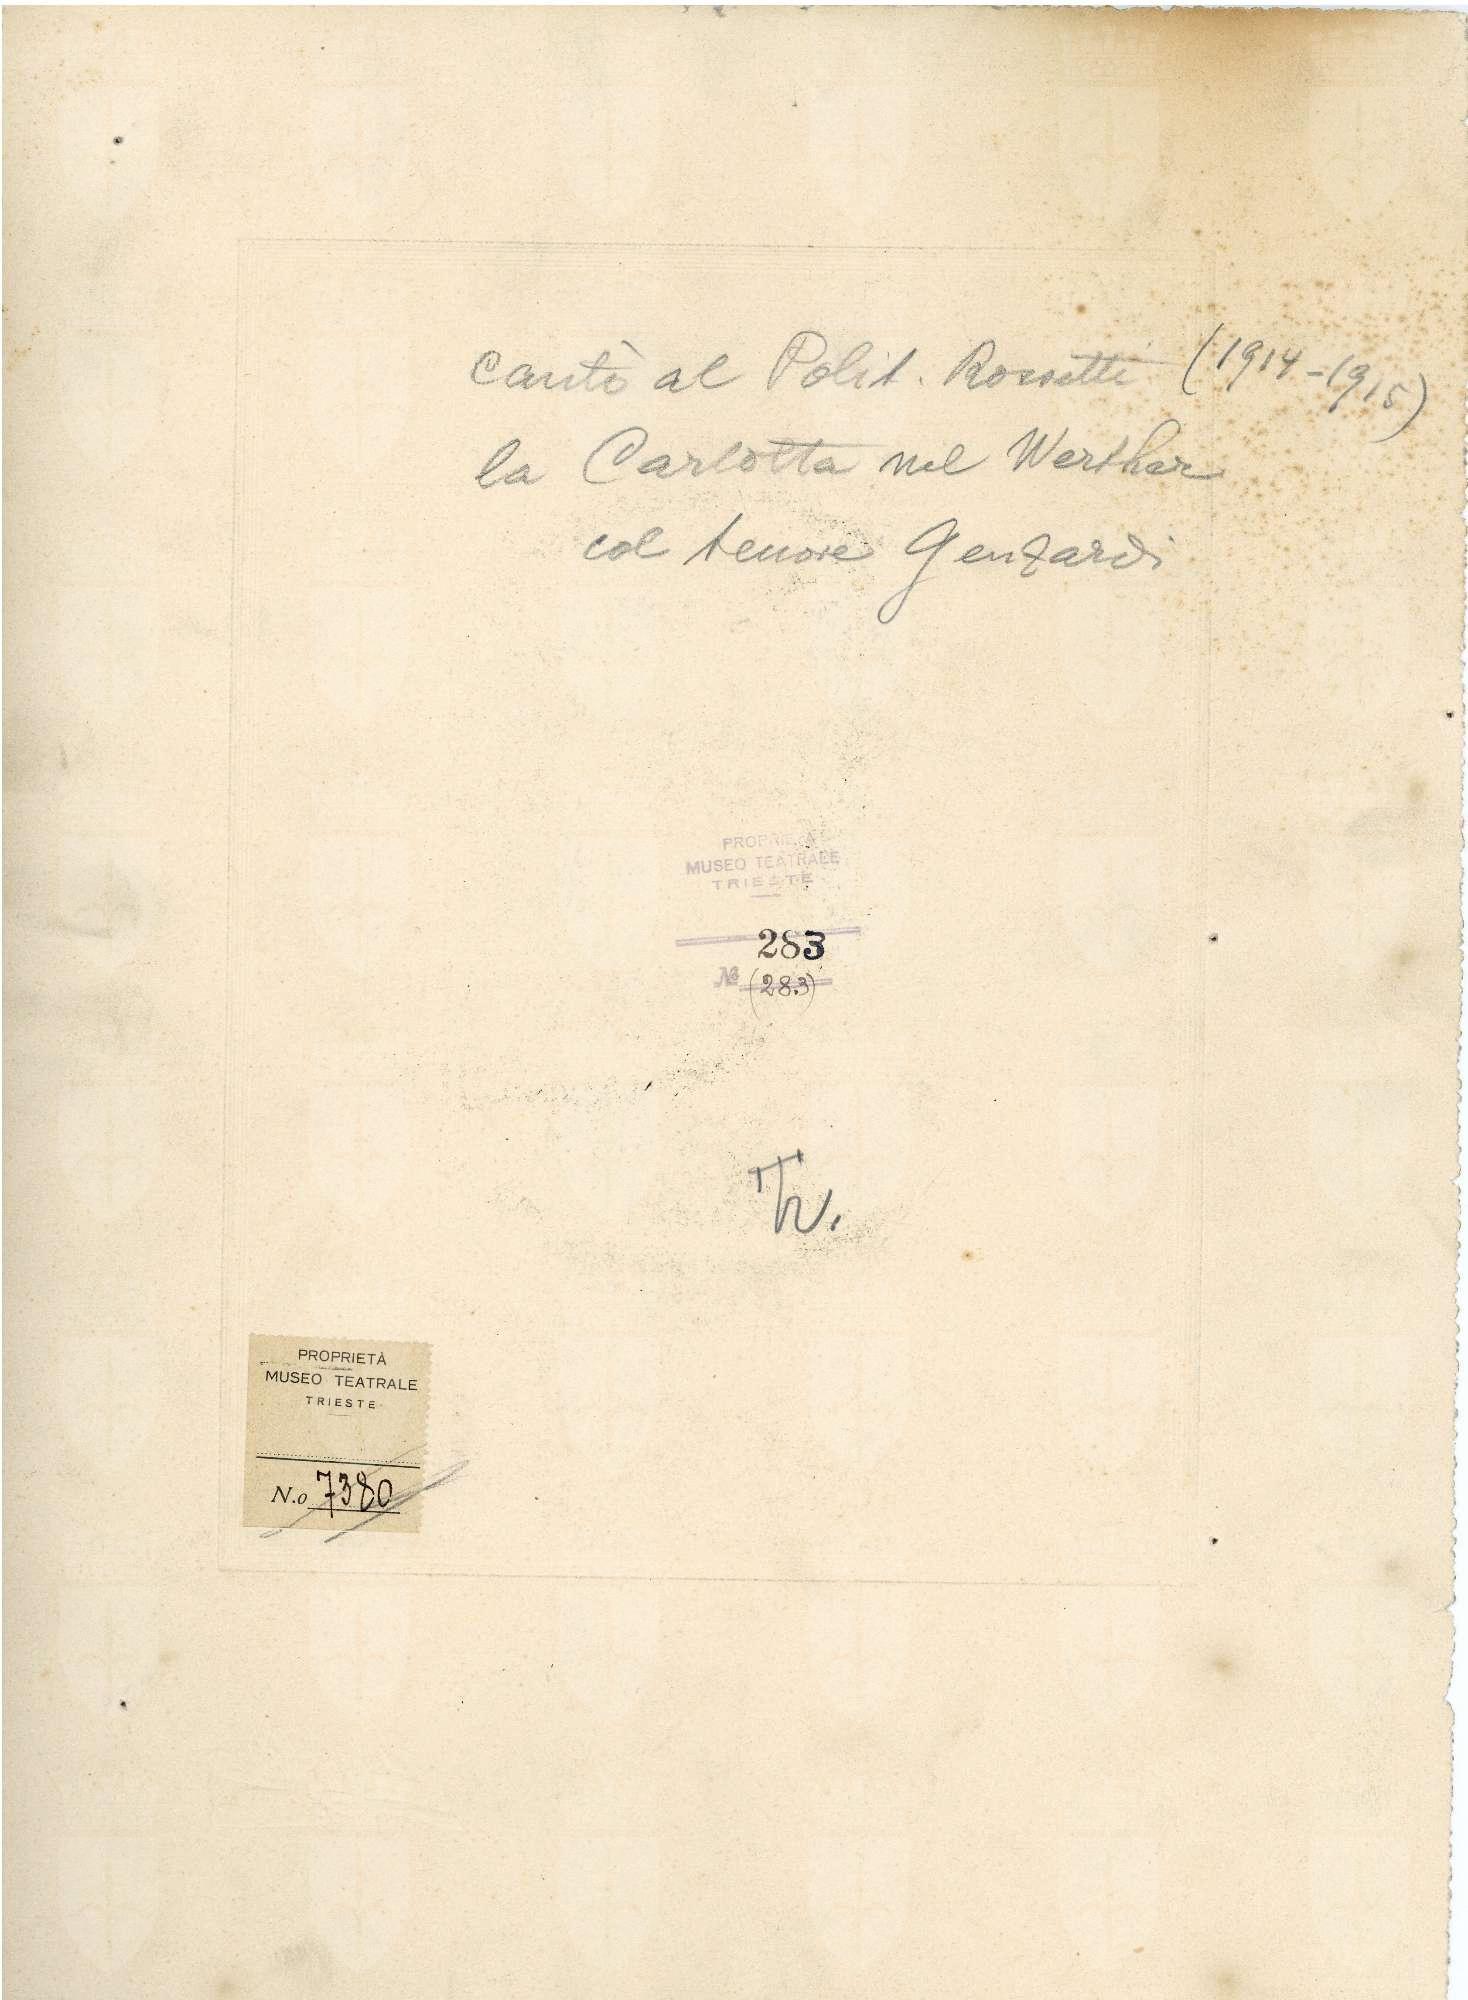 cantò al Polit. Rossetti (1914-1915)
la Carlotta nel Werther
col tenore Genzardi
PROPRIETÀ
MUSEO TEATRALE
TRIESTE
283
No (283)
PROPRIETÀ
MUSEO TEATRALE
TRIESTE
N.o 7380